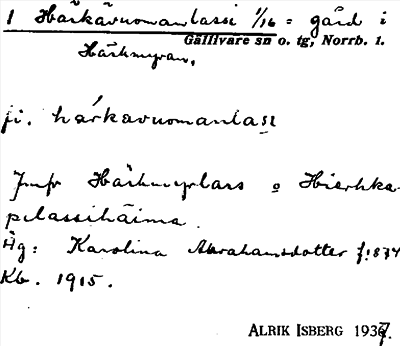 1 Härkävuomanlassi 1/16 = gård i
Gällivare sn o. tg, Norrb. l.
Härkmyran.
fi. härkavuomanlassi
Jmfr Härkmyrlars o Hierhka-
pelassihäima.
Äg: Karolina Abrahamsdotter f. 1874
Kb. 1915.
ALRIK ISBERG 1937.